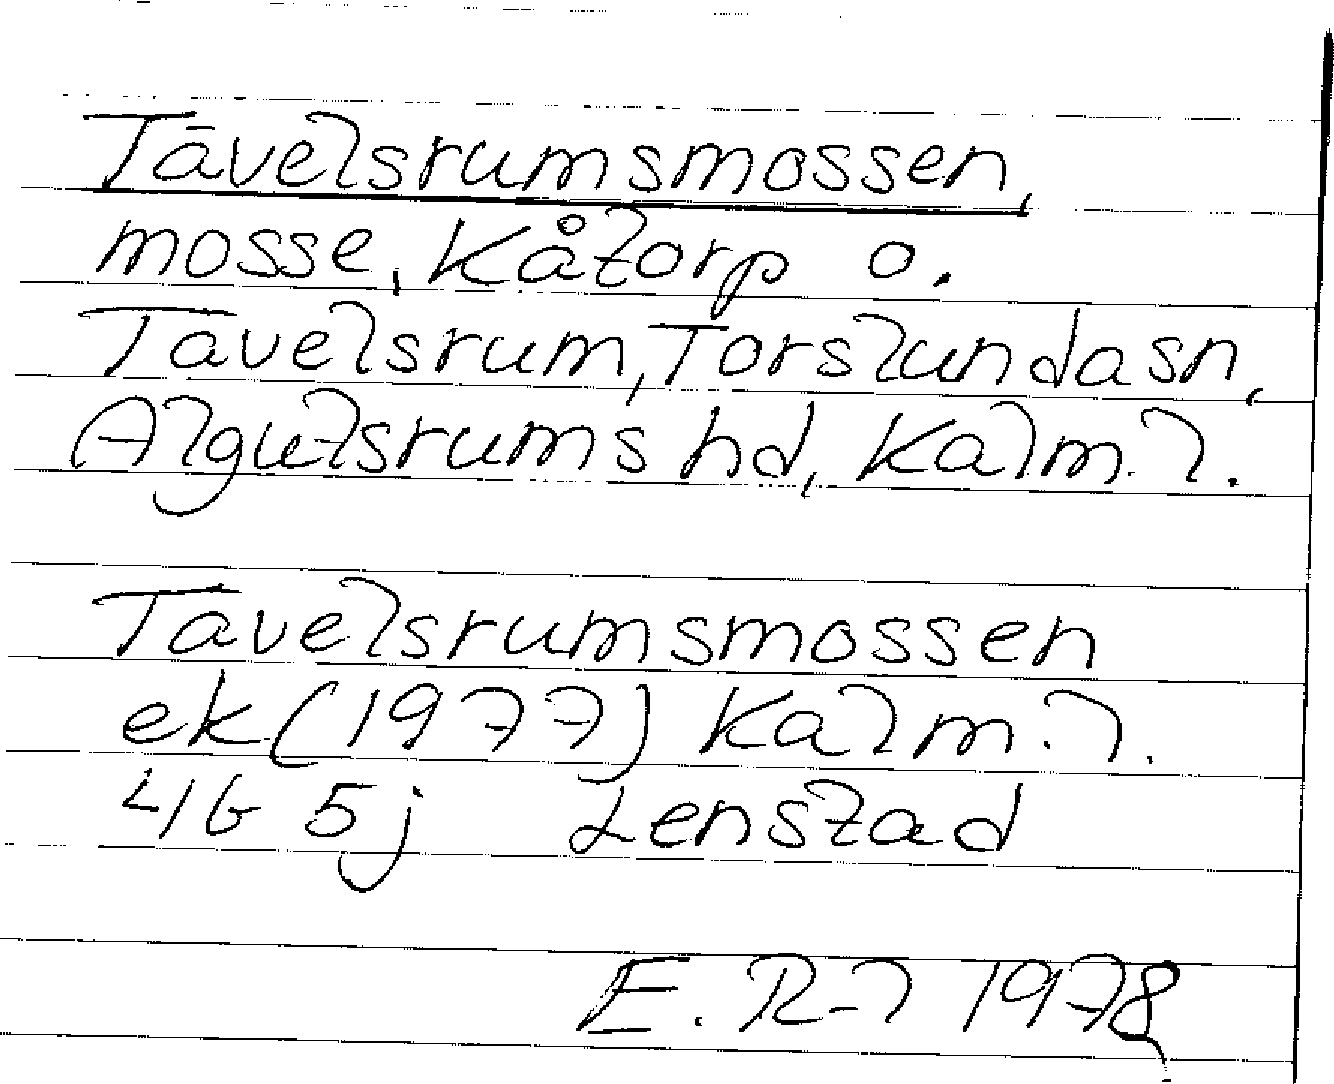 Tävelsrumsmossen,
mosse, Kåtorp o.
Tävelsrum, Torslunda sn,
Algutsrums hd, Kalm. l.
Tävelsrumsmossen
ek (1977) Kalm. l.
4G 5j Lenstad
E. R-l 1978